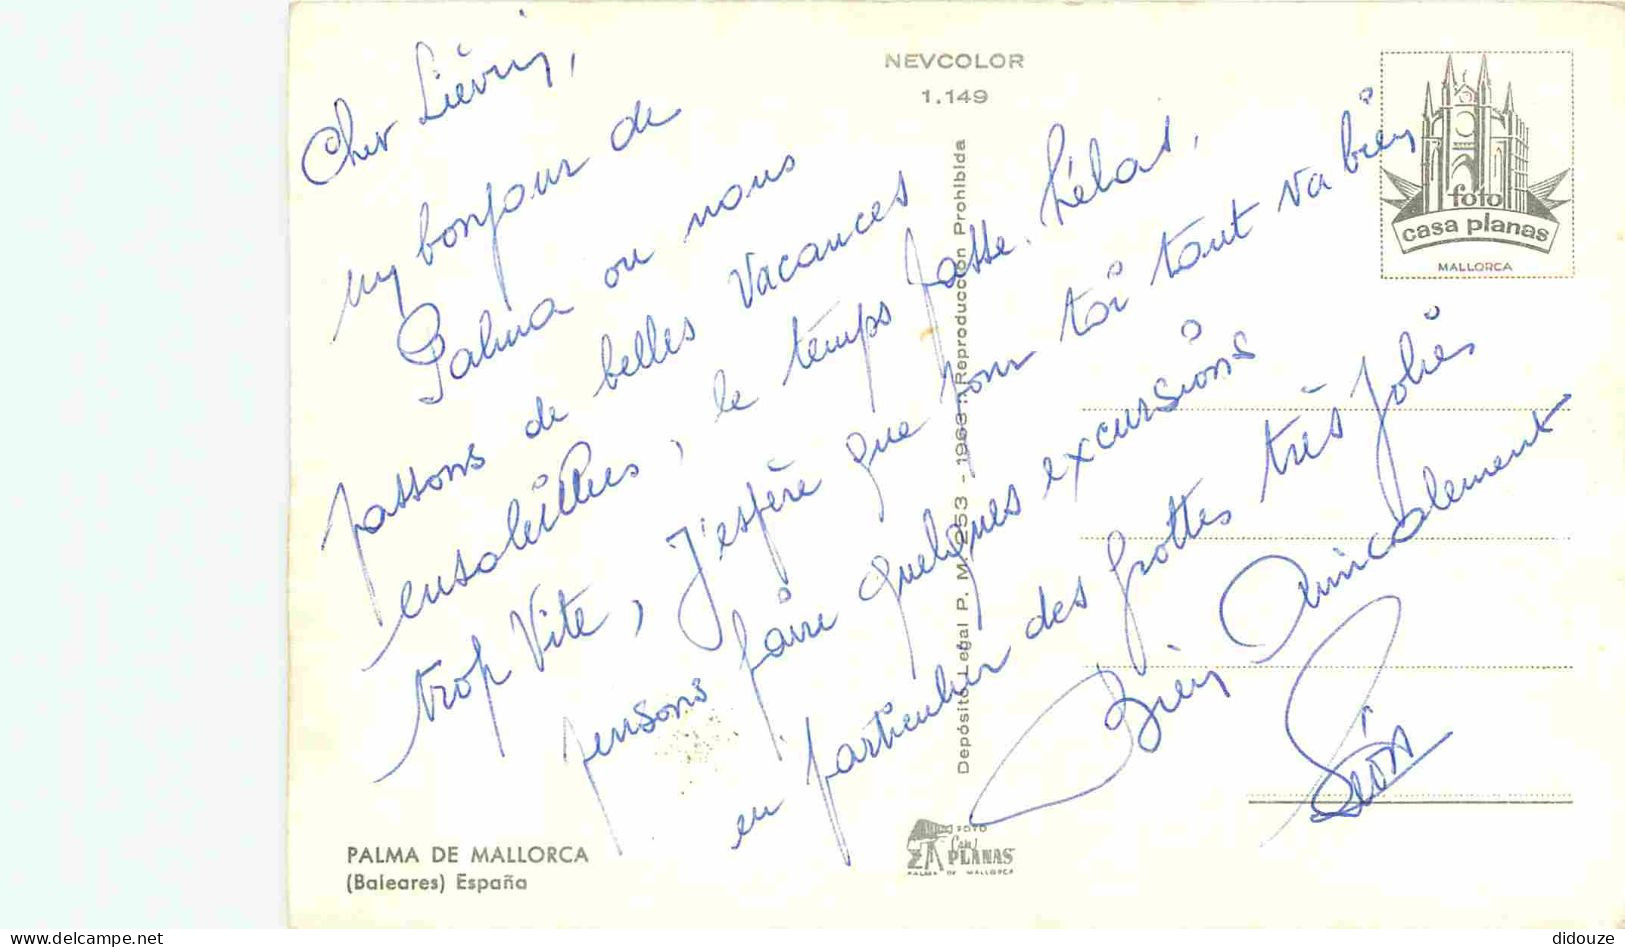 NEVCOLOR
1.149
foto
casa planas
MALLORCA
Cher Liévin,
un bonjour de
Palma ou nous
passons de belles vacances
ensoleillées, le temps passe hélas,
trop vite, J'espère que pour toi tout va bien
pensons faire quelques excursions
en particulier des grottes très jolies
Bien Amicalement
Depósito Legal P. M. 253 - 1963 : Reproducción Prohibida
FOTO
PLANAS
PALMA DE MALLORCA
PALMA DE MALLORCA
(Baleares) España
didouze